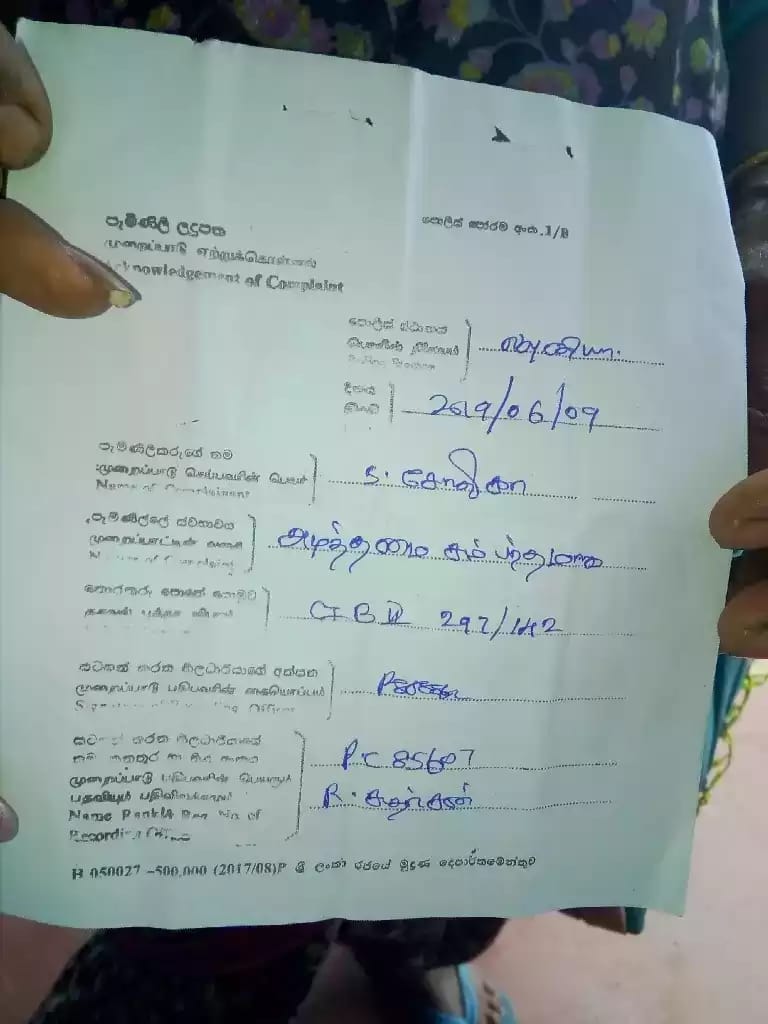 පැමිණිලි ලදුපත
முறைப்பாடு ஏற்றுக்கொள்ளல்
Acknowledgement of Complaint
පොලිස් පෝරම අංක.1/B
පොලිස් ස්ථානය
பொலிஸ் நிலையம்
Police Station
දිනය
திகதி
2019/06/09
පැමිණිලිකරුගේ නම
முறைப்பாடு செய்பவரின் பெயர்
Name of Complainant
S.
පැමිණිල්ලේ ස්වභාවය
முறைப்பாட்டின் வகை
Nature of Complaint
சம்பந்தமாக
තොරතුරු පොතේ
தகவல் புத்தக
CIB II 297/142
සටහන් කරන නිලධාරියාගේ අත්සන
முறைப்பாடு பதிபவரின் கையொப்பம்
Signature of Recording Officer
සටහන් කරන නිලධාරියාගේ
නම තනතුර හා
முறைப்பாடு பதிபவரின் பெயரும்
பதவியும் பதிவிலக்கமும்
Name Rank & Reg No. of
Recording Officer
PC 85607
R.
H 050027 -500,000 (2017/08)P ශ්‍රී ලංකා රජයේ මුද්‍රණ දෙපාර්තමේන්තුව